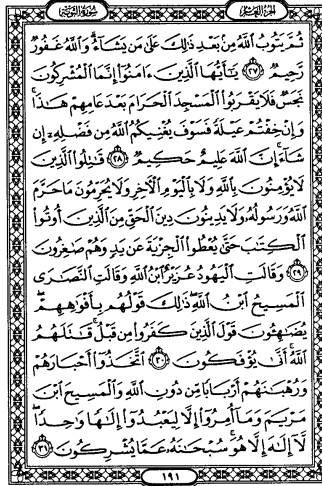 الجزء العاشر
سورة التوبة
ثُمَّ يَتُوبُ ٱللَّهُ مِنۢ بَعْدِ ذَٰلِكَ عَلَىٰ مَن يَشَآءُ ۗ وَٱللَّهُ غَفُورٌ
رَّحِيمٌ ﴿٢٧﴾ يَٰٓأَيُّهَا ٱلَّذِينَ ءَامَنُوٓا۟ إِنَّمَا ٱلْمُشْرِكُونَ
نَجَسٌ فَلَا يَقْرَبُوا۟ ٱلْمَسْجِدَ ٱلْحَرَامَ بَعْدَ عَامِهِمْ هَٰذَا ۚ
وَإِنْ خِفْتُمْ عَيْلَةً فَسَوْفَ يُغْنِيكُمُ ٱللَّهُ مِن فَضْلِهِۦٓ إِن
شَآءَ ۚ إِنَّ ٱللَّهَ عَلِيمٌ حَكِيمٌ ﴿٢٨﴾ قَٰتِلُوا۟ ٱلَّذِينَ
لَا يُؤْمِنُونَ بِٱللَّهِ وَلَا بِٱلْيَوْمِ ٱلْءَاخِرِ وَلَا يُحَرِّمُونَ مَا حَرَّمَ
ٱللَّهُ وَرَسُولُهُۥ وَلَا يَدِينُونَ دِينَ ٱلْحَقِّ مِنَ ٱلَّذِينَ أُوتُوا۟
ٱلْكِتَٰبَ حَتَّىٰ يُعْطُوا۟ ٱلْجِزْيَةَ عَن يَدٍ وَهُمْ صَٰغِرُونَ
﴿٢٩﴾ وَقَالَتِ ٱلْيَهُودُ عُزَيْرٌ ٱبْنُ ٱللَّهِ وَقَالَتِ ٱلنَّصَٰرَى
ٱلْمَسِيحُ ٱبْنُ ٱللَّهِ ۖ ذَٰلِكَ قَوْلُهُم بِأَفْوَٰهِهِمْ ۖ
يُضَٰهِـُٔونَ قَوْلَ ٱلَّذِينَ كَفَرُوا۟ مِن قَبْلُ ۚ قَٰتَلَهُمُ
ٱللَّهُ ۚ أَنَّىٰ يُؤْفَكُونَ ﴿٣٠﴾ ٱتَّخَذُوٓا۟ أَحْبَارَهُمْ
وَرُهْبَٰنَهُمْ أَرْبَابًا مِّن دُونِ ٱللَّهِ وَٱلْمَسِيحَ ٱبْنَ
مَرْيَمَ وَمَآ أُمِرُوٓا۟ إِلَّا لِيَعْبُدُوٓا۟ إِلَٰهًا وَٰحِدًا ۖ
لَّآ إِلَٰهَ إِلَّا هُوَ ۚ سُبْحَٰنَهُۥ عَمَّا يُشْرِكُونَ ﴿٣١﴾
١٩١